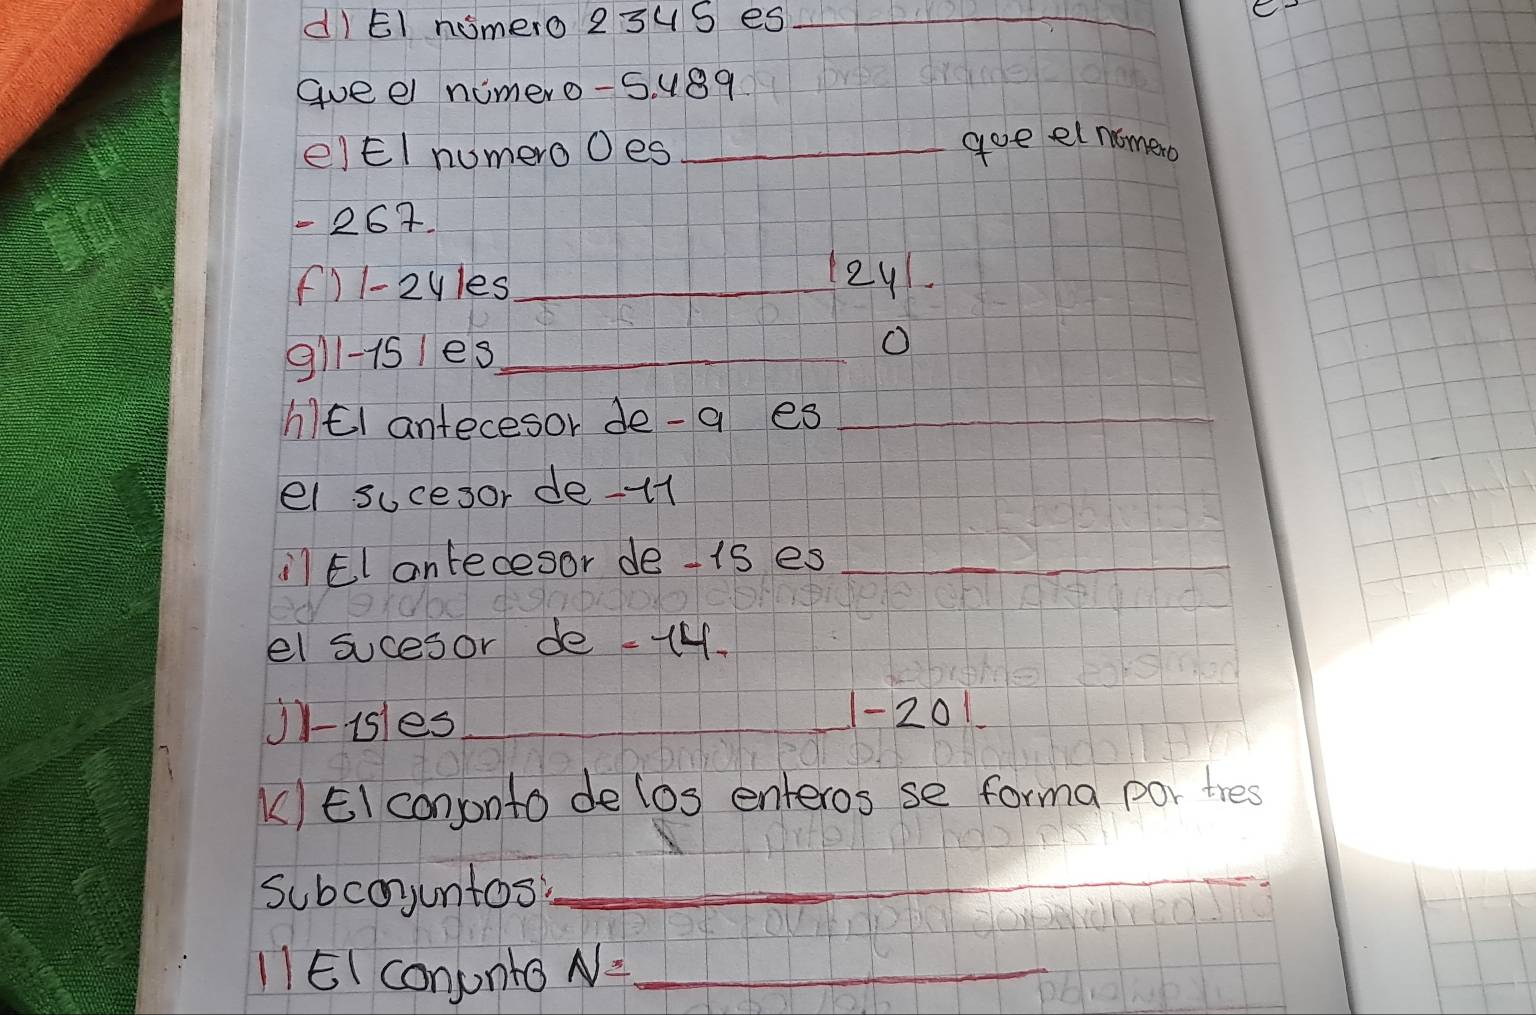 d) El número 2345 es
que el número -5.489.
e) El numero 0 es que el número
-267.
f) |-24| es |24|.
g) |-15| es 0
h) El antecesor de -9 es
el sucesor de -11
i) El antecesor de -15 es
el sucesor de -14.
j) |-15| es |-20|.
k) El conjunto de los enteros se forma por tres
subconjuntos:
l) El conjunto N=